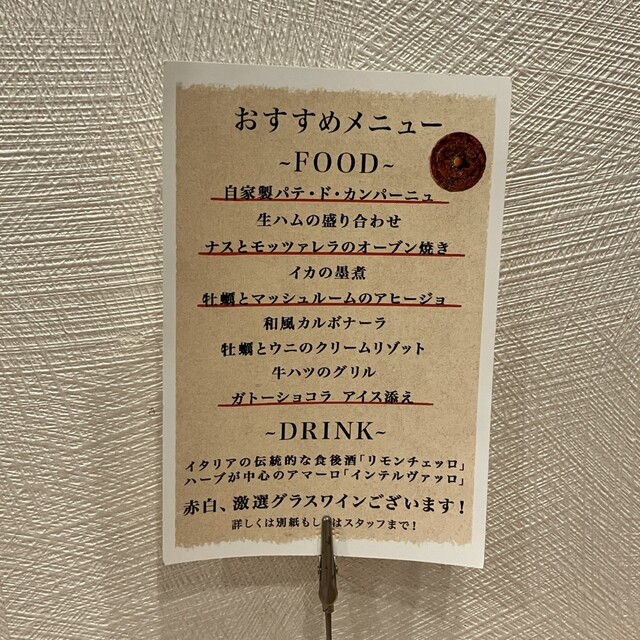 おすすめメニュー
~FOOD~
自家製パテ・ド・カンパーニュ
生ハムの盛り合わせ
ナスとモッツァレラのオーブン焼き
イカの墨煮
牡蠣とマッシュルームのアヒージョ
和風カルボナーラ
牡蠣とウニのクリームリゾット
牛ハツのグリル
ガトーショコラ アイス添え
~DRINK~
イタリアの伝統的な食後酒「リモンチェッロ」
ハーブが中心のアマーロ「インテルヴァッロ」
赤白、激選グラスワインございます!
詳しくは別紙もし はスタッフまで!